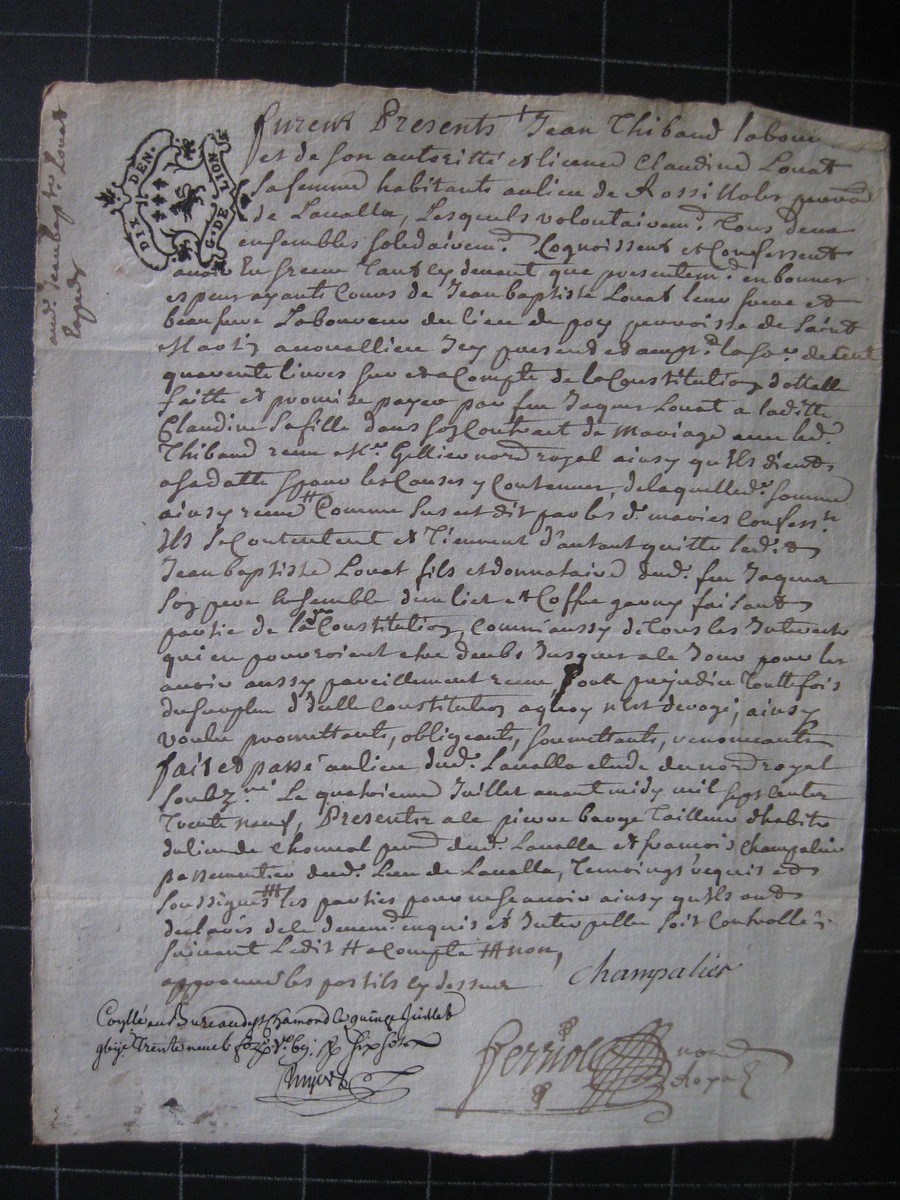 DIX DEN.
G. DE LION
furent Presents Jean Thibaud labour
et de son autoritté et licence Claudine Louat
sa femme habitants au lieu de Rossillols
de Laualla, Lesquels volontairemt. Tous deux
ensembles solidairemt. Cognoissent et Confessent
auoir En Tant cy deuant que presentemt. en bonnes
et ayants Cours de Jean baptiste Louat leur frere et
beaufrere Laboureur du lieu de poy parroisse de Saint
Martin acouallieu Icy present et acceptt. la som. de cent
quarente liures sur et a Compte de la Constitution dottalle
faitte et promise payer par feu Jaques Louat a laditte
Claudine sa fille dans son Contract de Mariage auec led.
Thibaud receu Me. Gillier nore. royal ainsy quils dient
a sa datte pour les Causes y Contenues, de laquelle d. somme
ainsy receue # Comme sus est dit par les d. maries Confesst.
Ils Se Contentent et Tiennent d'autant quitte led.
Jean baptiste Louat fils et donnataire dud. feu Jaques
son pere Ensemble du lict et Coffre garny faisant
partie de lad. Constitution, comm'aussy de tous les Interests
qui en pourroient estre deubs Jusques a ce Jour pour les
auoir aussy pareillement receu, sans prejudice Touttefois
du surplus d'Icelle Constitution a quoy n'est derogé, ainsy
voulu promettants, obligeants, soumettants, renonceants
fait et passé au lieu dud. Laualla etude du nore. royal
soubz.né Le quatorzieme Juillet auant midy mil sept cents
Trente neuf, Presents a ce pierre baroge Tailleur d'habits
du lieu de Chomeal dud. Laualla et francois Champalier
passementier dud. Lieu de Laualla, Temoings requis et
soussignés ## les parties pour ne scauoir ainsy quils ont
declarés de ce enquis et Interpellé soit Controllé
suiuant Ledit # a Compte ## non,
approuué les postils cy dessus
Champalier
Conllé au Bureau de St Chamond le quinze Juillet
gbije Trente neuf
ferriol nore
Royal
aud. Jean bapte. Louat